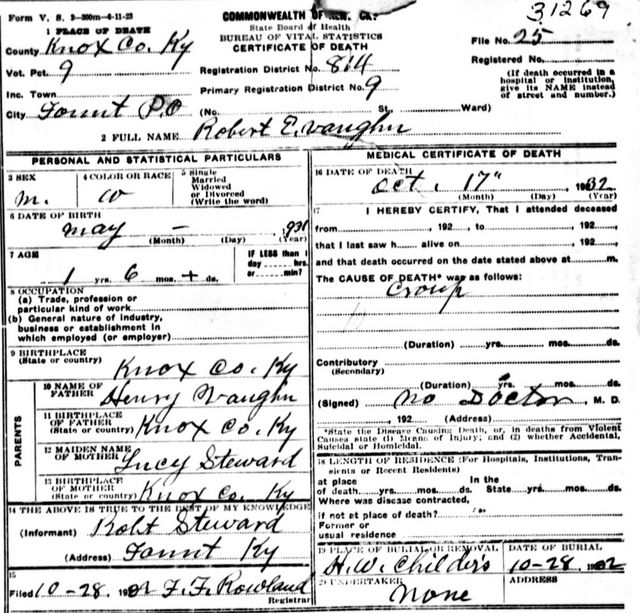 Form V. S. 3-200m-6-11-23
COMMONWEALTH OF
31269
1 PLACE OF DEATH
State Board of Health
BUREAU OF VITAL STATISTICS
CERTIFICATE OF DEATH
File No. 25
County Knox Co. Ky
Registered No.
Vot. Pct. 9
Registration District No. 814
(If death occurred in a hospital or institution, give its NAME instead of street and number.)
Inc. Town
Primary Registration District No. 9
City P.O (No. St., Ward)
2 FULL NAME Robert E. Vaughn
PERSONAL AND STATISTICAL PARTICULARS
3 SEX
m.
4 COLOR OR RACE
w
5 Single
Married
Widowed
or Divorced
(Write the word)
6 DATE OF BIRTH
may - 1931
(Month) (Day) (Year)
7 AGE
1 yrs. 6 mos. + ds.
IF LESS than 1
day hrs.
or min?
8 OCCUPATION
(a) Trade, profession or
particular kind of work
(b) General nature of industry,
business or establishment in
which employed (or employer)
9 BIRTHPLACE
(State or country) Knox Co. Ky
PARENTS
10 NAME OF
FATHER Henry Vaughn
11 BIRTHPLACE
OF FATHER
(State or country) Knox Co. Ky
12 MAIDEN NAME
OF MOTHER Lucy Steward
13 BIRTHPLACE
OF MOTHER
(State or country) Knox Co. Ky
14 THE ABOVE IS TRUE TO THE BEST OF MY KNOWLEDGE
(Informant) Robt Steward
(Address) Ky
15
Filed 10-28 1932 F. F. Rowland
Registrar
MEDICAL CERTIFICATE OF DEATH
16 DATE OF DEATH
Oct. 17" 1932
(Month) (Day) (Year)
17 I HEREBY CERTIFY, That I attended deceased
from , 192 , to , 192
that I last saw h alive on , 192
and that death occurred on the date stated above at m.
The CAUSE OF DEATH* was as follows:
Croup
(Duration) yrs. mos. ds.
Contributory
(Secondary)
(Duration) yrs. mos. ds.
(Signed) No Doctor, M. D.
, 192 (Address)
*State the Disease Causing Death, or, in deaths from Violent
Causes state (1) Means of Injury; and (2) whether Accidental,
Suicidal or Homicidal.
18 LENGTH OF RESIDENCE (For Hospitals, Institutions, Transients
or Recent Residents)
at place In the
of death yrs. mos. ds. State yrs. mos. ds.
Where was disease contracted,
if not at place of death?
Former or
usual residence
19 PLACE OF BURIAL OR REMOVAL
H. W. Childers
DATE OF BURIAL
10-28-1932
20 UNDERTAKER
None